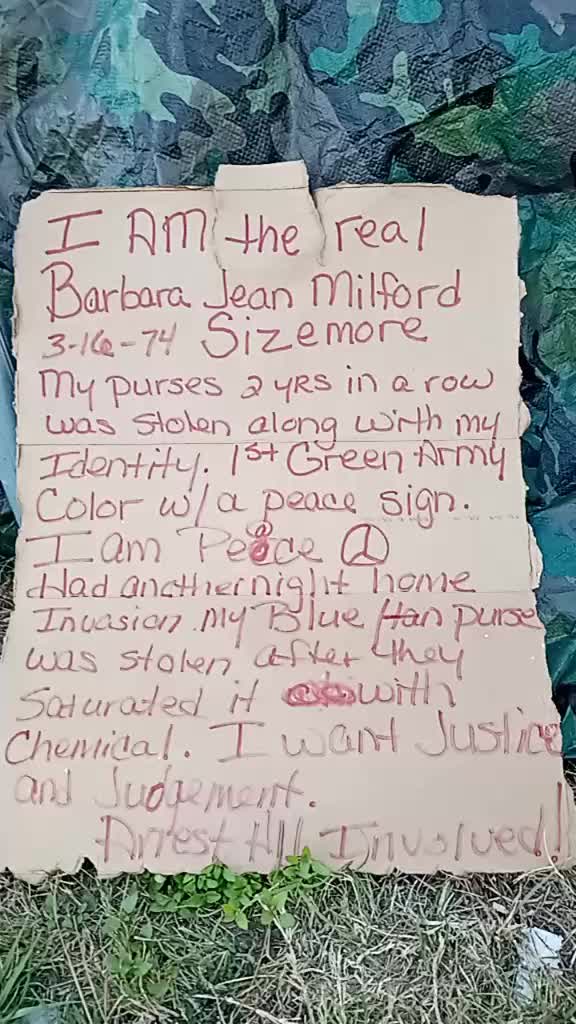 I AM the real
Barbara Jean Milford
3-16-74 Sizemore
My purses 2 YRS in a row
was stolen along with my
Identity. 1st Green Army
Color w/ a peace sign.
I am Peace
Had another night home
Invasion. My Blue /tan purse
was stolen after they
Saturated it with
Chemical. I want Justice
and Judgement.
Arrest All Involved!